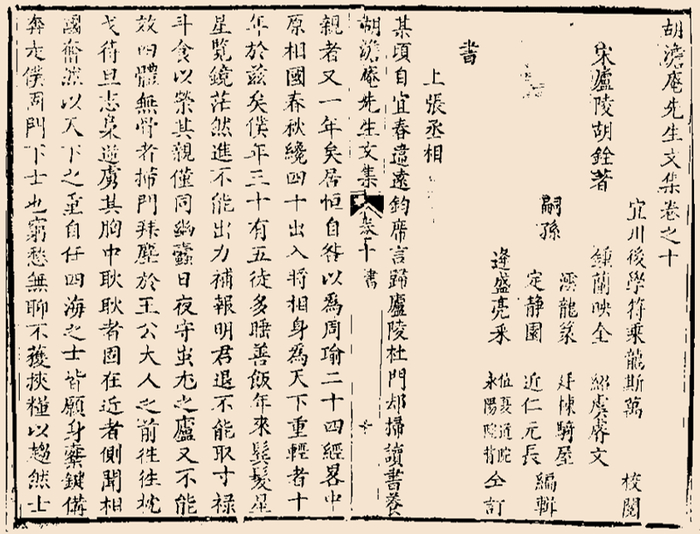 胡澹庵先生文集卷之十
宜川後學符乘龍斯萬 校閱
宋廬陵胡銓著 鍾蘭映全 紹虞賡文
澐龍篆 廷棟騎屋
嗣孫 定静園 近仁元長 編輯
逢盛亮采 位憂道院 永陽院背 仝訂
書
上張丞相
某頃自宜春違遠鈞席言歸廬陵杜門却掃讀書養
胡澹庵先生文集 卷十 書
親者又一年矣居恒自咎以爲周瑜二十四經畧中
原相國春秋纔四十出入將相身為天下重輕者十
年於兹矣僕年三十有五徒多睡善飯年來鬂髮星
星覧鏡茫然進不能出力補報明君退不能取寸禄
斗食以榮其親僅同幽蠶日夜守蚩尤之廬又不能
效四體無骨者掃門拜塵於王公大人之前徃徃枕
戈待旦志梟逆虜其胸中耿耿者固在近者側聞相
國奮然以天下之重自任四海之士皆願身橐鍵備
奔走僕周門下士也窮愁無聊不獲挾糧以趨然士